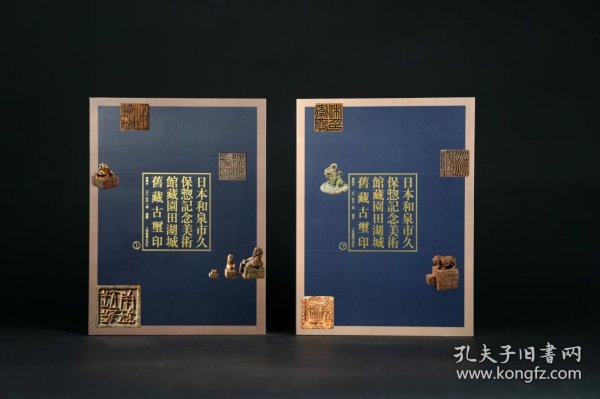 日本和泉市久
保惣記念美術
館藏園田湖城
舊藏古璽印
上
日本和泉市久
保惣記念美術
館藏園田湖城
舊藏古璽印
下
孔夫子旧书网
www.kongfz.com